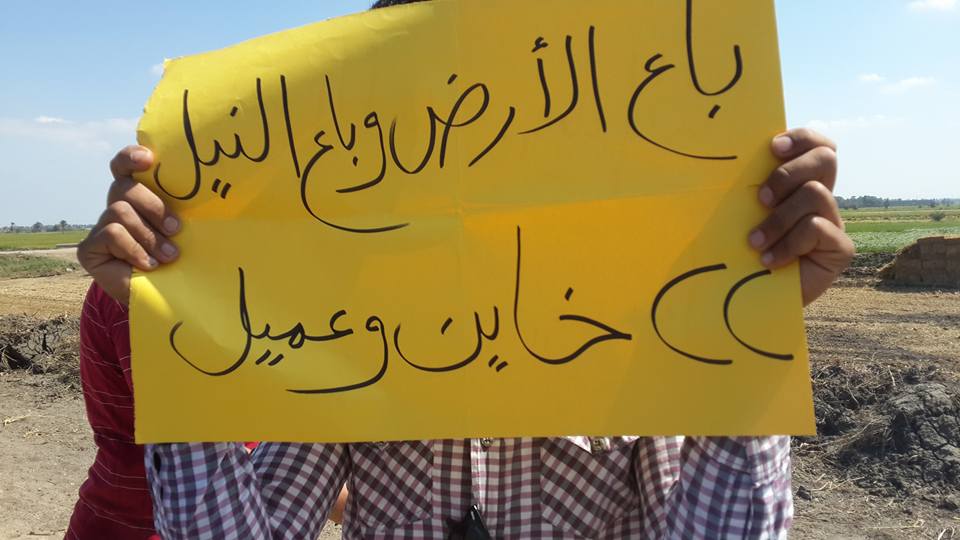 باع الأرض وباع النيل
(( خاين وعميل